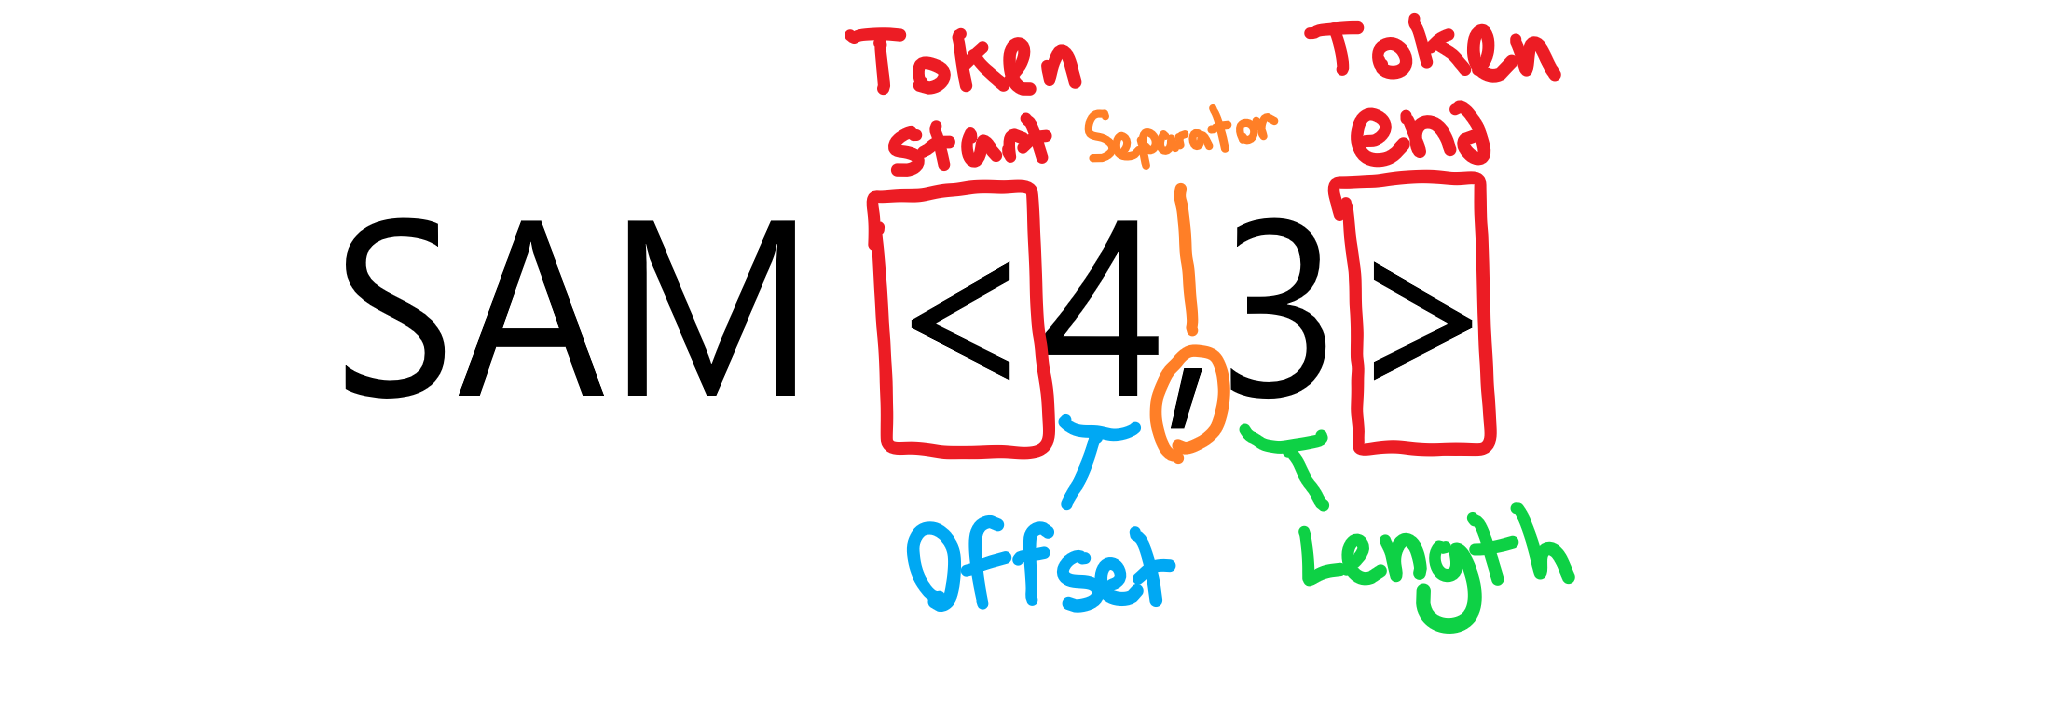 Token
start
Separator
Token
end
SAM <4,3>
Offset
Length